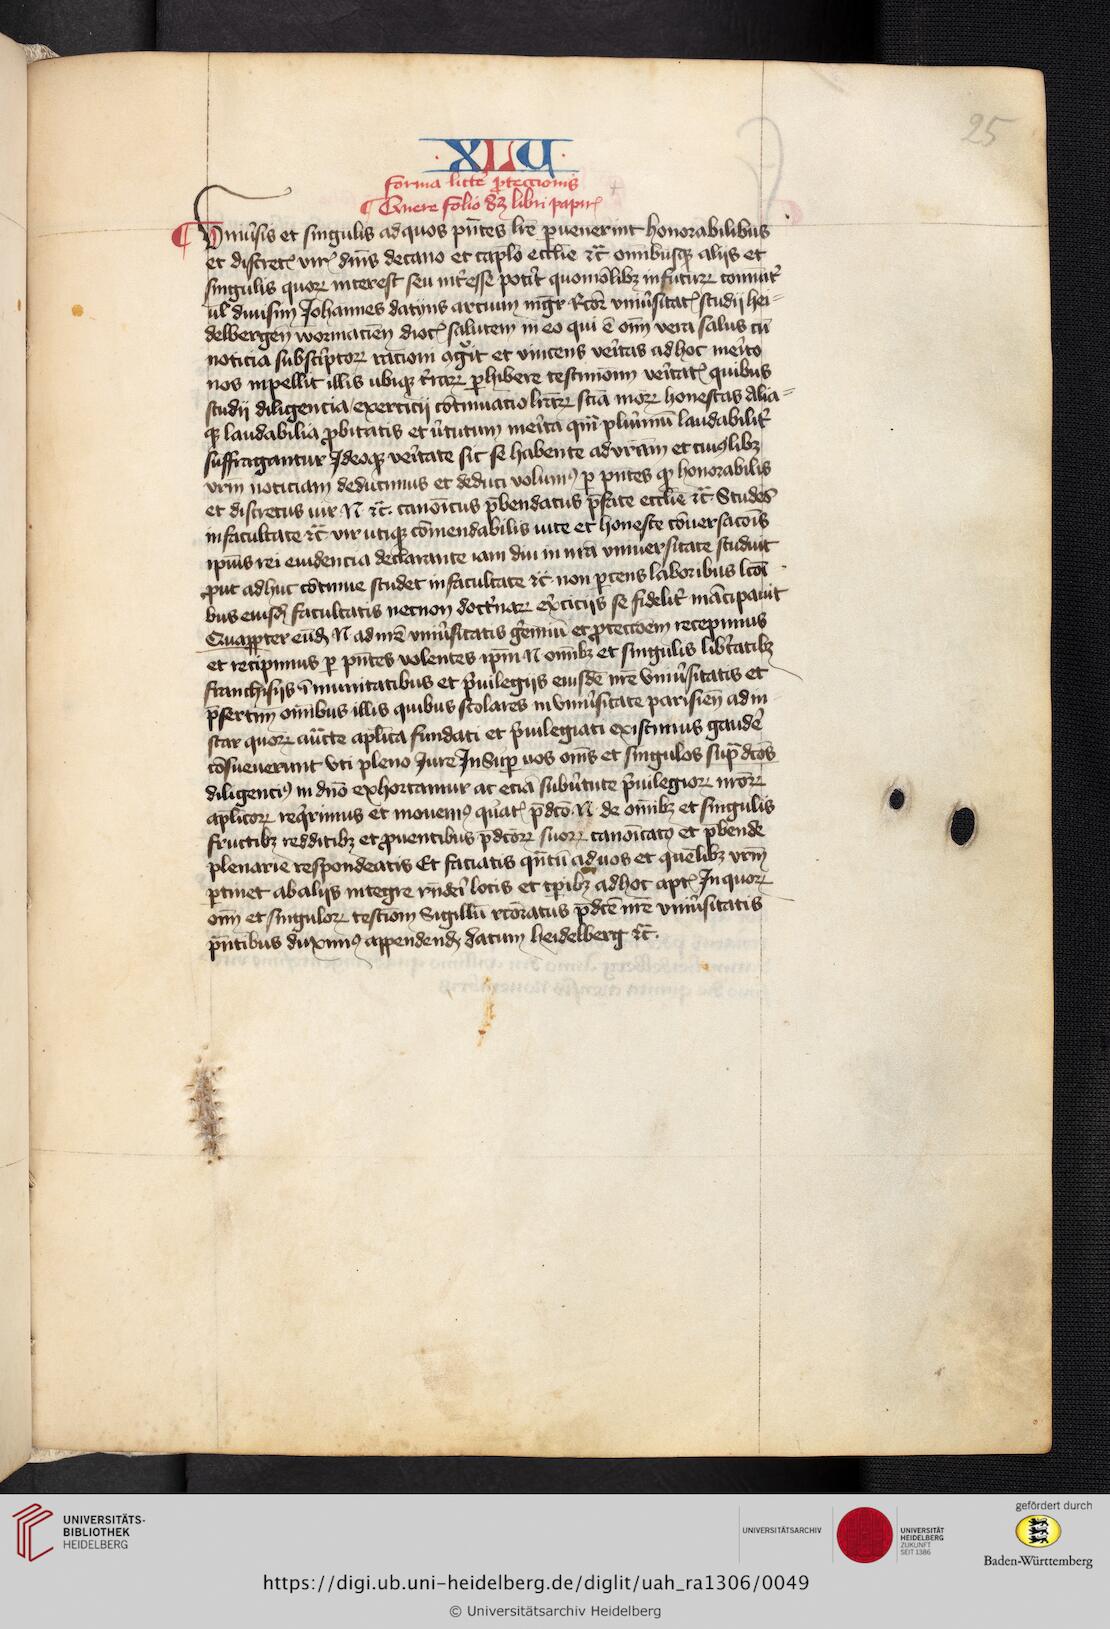 25
XLV
forma litte ꝓteccionis
Quere folio 83 libri papirꝭ
Vniuˀsis et singulis ad quos pn̄tes lr̄e ꝑuenerint honorabilibus
et discretꝭ virꝭ dn̄is decano et capl̄o eccl̄ie ⁊c̄ omnibusqꝫ alijs et
singulis quorꝝ interest seu intˀesse potˀit quomōlibꝫ in futurꝝ coniūctˀ
ul̓ diuisim Johannes datijns artium mgr̄ Rcōr vniuˀsitatꝭ studij hei-
delbergen̄ wormacien̄ diocꝭ salutem in eo qui ē om̄i vera salus cū
noticia subscriptorꝝ racioni ꝯgͦit et vincens veˀitas ad hoc meˀito
nos inpellit illis ubiqꝫ tˀrarꝝ ꝑhibere testimoniū veˀitatꝭ quibus
studij diligencia/exercicij cōtinuacio lr̄arꝝ sciā morꝝ honestas Alia-
qꝫ laudabilia ꝓbitatis et uˀtutum meˀita qm̄ plurimū laudabilitˀ
suffragantur Ideoqꝫ veˀitate sic se habente ad vr̄am et cuiꝰlibꝫ
vrm̄ noticiam deducimus et deduci volumꝰ ꝑ pn̄tes qꝫ honorabilis
et discretus uir N ⁊c̄. canōicus p̄bendatus p̄fate eccl̄ie ⁊c̄ Studēs
in facultate ⁊c̄ vir utiqꝫ cōmendabilis uite et honeste cōuersacōis
ipīus rei euidencia declarante iam diu in nr̄a vniuersitate studuit
ꝓut adhuc cōtinue studet in facultate ⁊c̄ non ꝑcens laboribus lcōi
bus eiusdꝫ facultatis necnon doctˀinarꝝ exˀcicijs se fidelitˀ mācipauit
Quaꝓpter eūdꝫ N ad nr̄e vniuˀsitatis gˀemiū et ꝓteccōem recepimus
et recipimus ꝑ pn̄tes volentes ipm̄ N om̄ibꝫ et singulis libˀtatibꝫ
franchisijs īmunitatibus et pˀuilegijs eiusdē nr̄e vniuˀsitatis et
p̄sertim om̄ibus illis quibus scolares in vniuˀsitate parisien̄ ad in-
star quorꝝ auctē aplīca fundati et pˀuilegiati existimus gaudēˀ
cōsueuerunt vti pleno Jure Insuꝑ uos om̄s et singulos sup̄dcōs
diligenciꝰ in dn̄o exhortamur ac eciā sub uˀtute pˀuilegiorꝝ nr̄orꝝ
aplīcorꝝ reqˀrimus et monemꝰ qˀatꝭ p̄dcō. N de om̄ibꝫ et singulis
fructibꝫ redditibꝫ et ꝓuentibus p̄dcōrꝝ suorꝝ canōicatꝰ et p̄bende
plenarie respondeatis Et faciatis qn̄tū ad uos et quēlibꝫ vrm̄
ꝑtinet ab alijs integre rn̄deˀi locis et tp̄ibꝫ ad hoc aptꝭ In quorꝝ
om̄i et singulorꝝ testiōm Sigillū rcōratus p̄dcē nr̄e vniuˀsitatis
pn̄tibus duximꝰ appendendꝫ datum heidelberg ⁊c̄.
UNIVERSITÄTS-
BIBLIOTHEK
HEIDELBERG
UNIVERSITÄTSARCHIV
UNIVERSITÄT
HEIDELBERG
ZUKUNFT
SEIT 1386
gefördert durch
Baden-Württemberg
https://digi.ub.uni-heidelberg.de/diglit/uah_ra1306/0049
© Universitätsarchiv Heidelberg